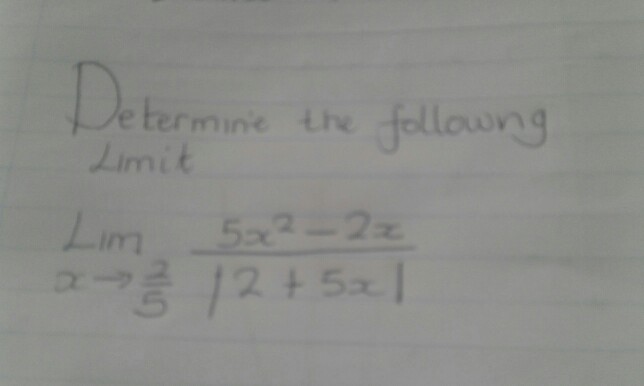 Determine the following
Limit
Lim 5x² - 2x
x → 2/5 |2 + 5x|